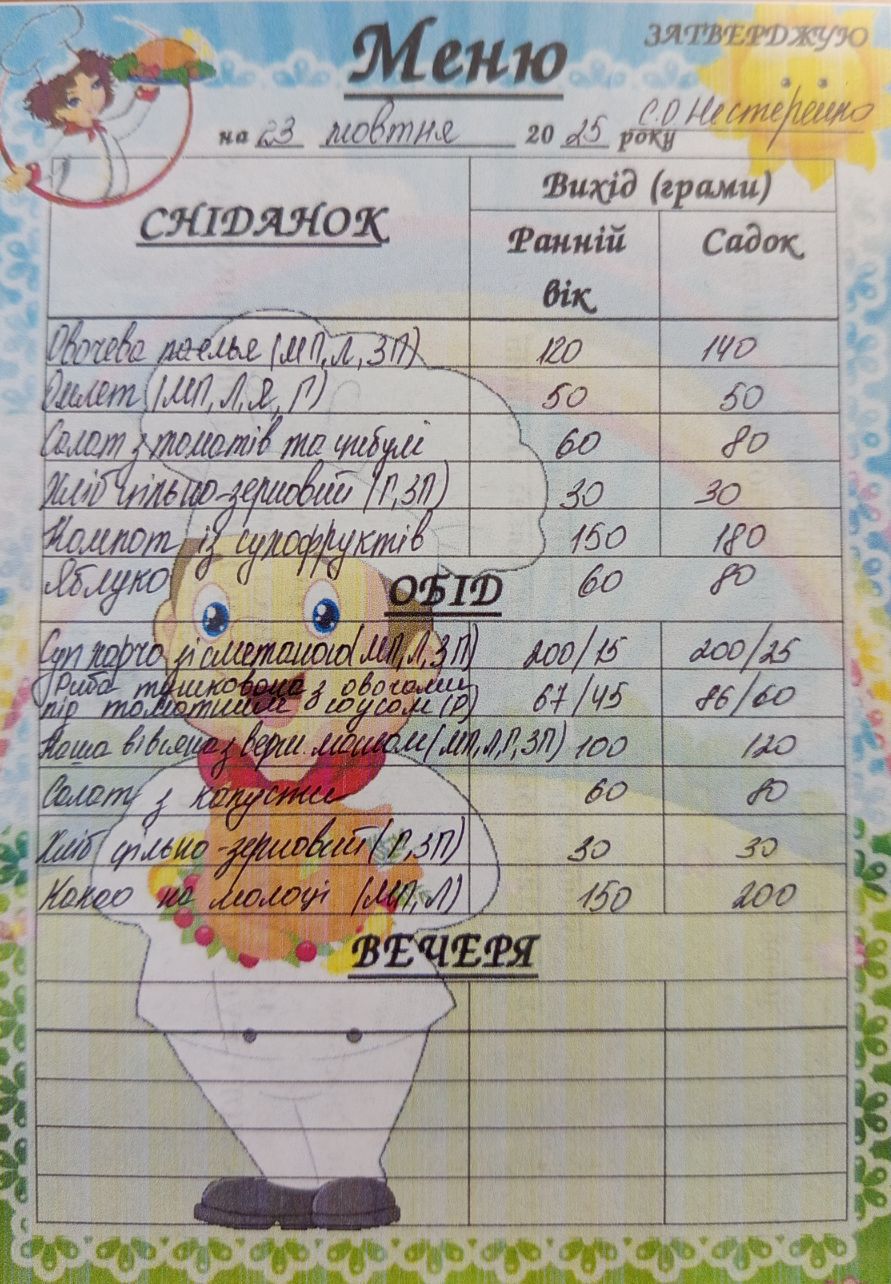 Меню
ЗАТВЕРДЖУЮ
С.О Нестеренко
на 23 жовтня 2025 року
СНІДАНОК
Вихід (грами)
Ранній вік
Садок
Овочева паелья (МП, Л, ЗП) 120 140
Омлет (МП, Л, Я, Г) 50 50
Салат з томатів та цибулі 60 80
Хліб цільно-зерновий (Г, ЗП) 30 30
Компот із сухофруктів 150 180
Яблуко 60 80
ОБІД
Суп харчо зі сметаною (МП, Л, ЗП) 200/15 200/25
Риба тушкована з овочами
під томатним соусом (Р) 67/45 86/60
Каша вівсяна з верш. маслом (МП, Л, Г, ЗП) 100 120
Салат з капусти 60 80
Хліб цільно-зерновий (Г, ЗП) 30 30
Какао на молоці (МП, Л) 150 200
ВЕЧЕРЯ